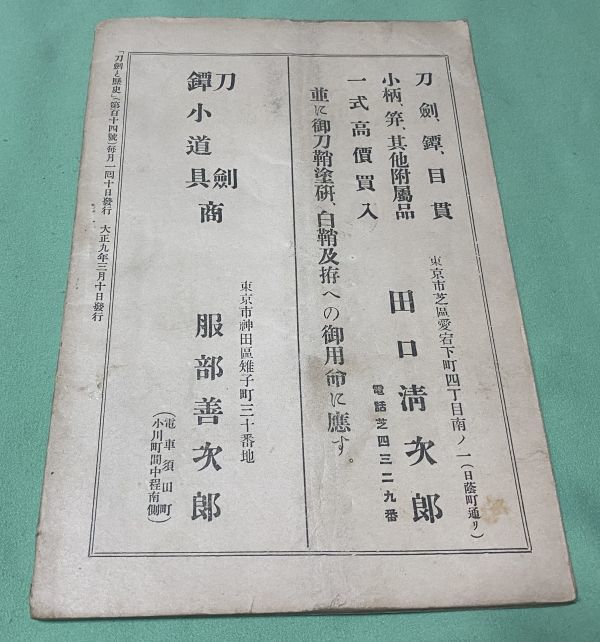 刀劍、鐔、目貫
小柄、笄、其他附屬品
一式高價買入
並に御刀鞘塗硏、白鞘及拵への御用命に應す。
東京市芝區愛宕下町四丁目南ノ一(日蔭町通リ)
田口淸次郎
電話芝四三二九番
刀劍
鐔小道具商
東京市神田區雉子町三十番地
服部善次郎
(電車須田町
小川町間中程南側)
「刀劍と歷史」(第百十四號)每月一囘十日發行 大正九年三月十日發行